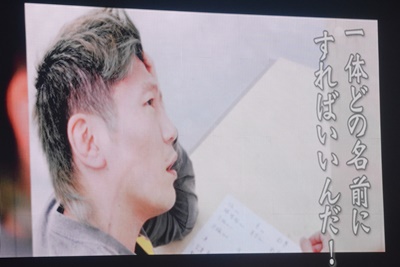 一体どの名前に
すればいいんだ!